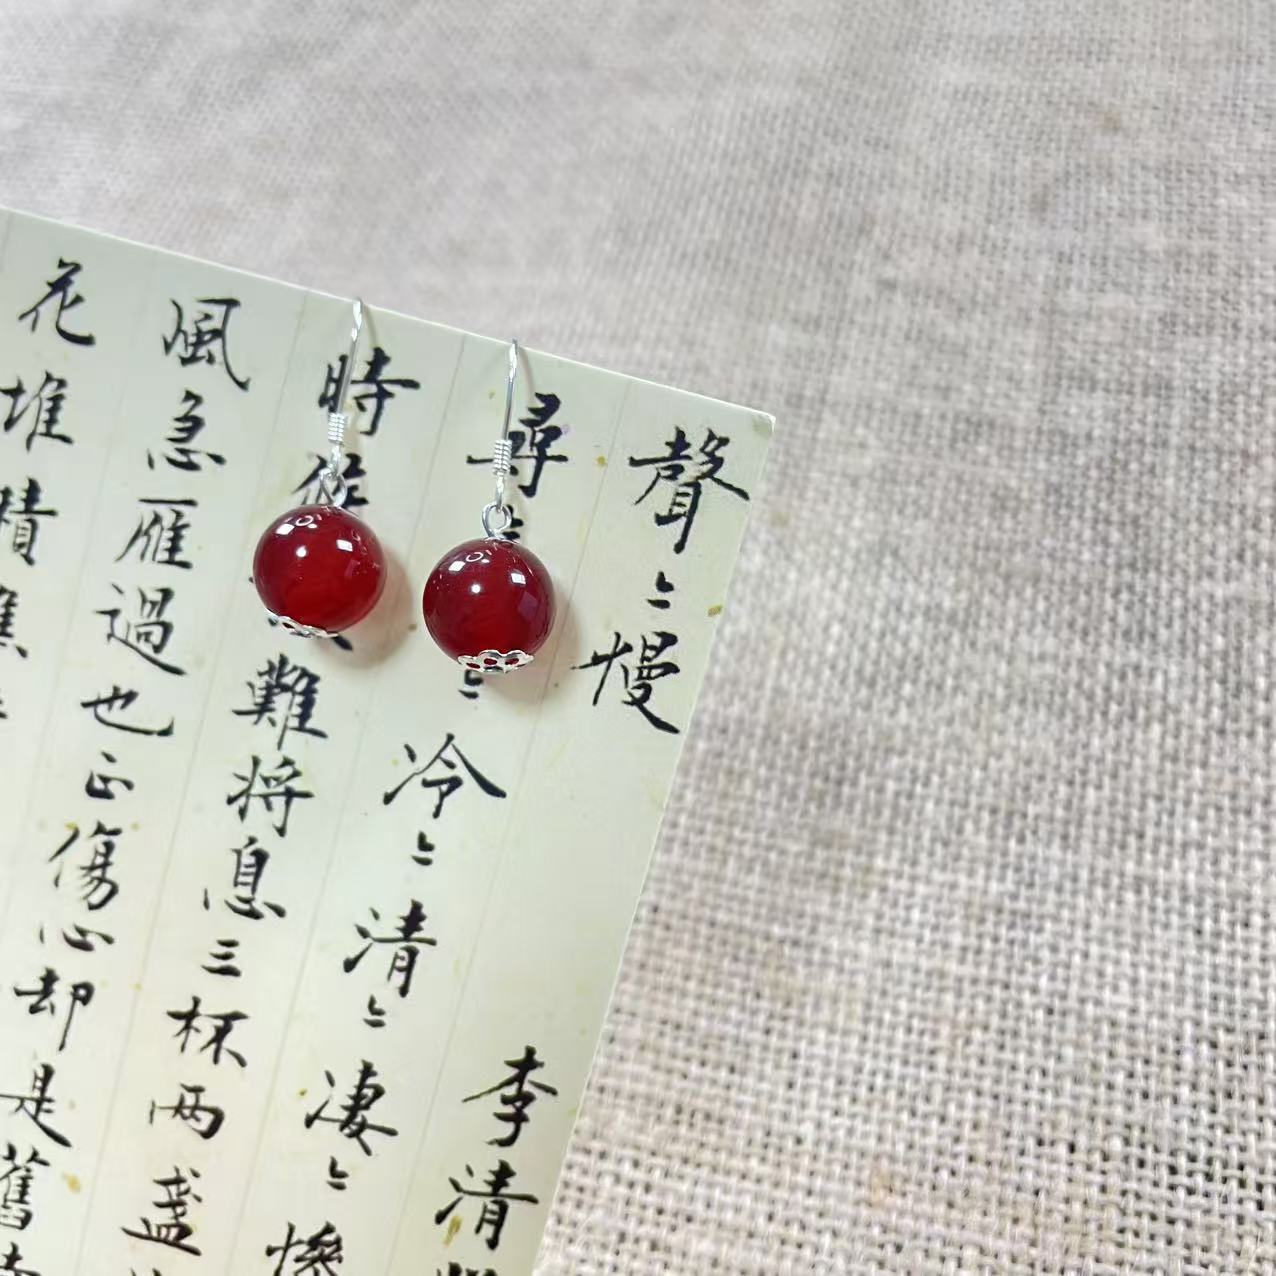 聲〻慢
李清
尋
〻冷〻清〻凄〻慘
時
難將息三杯兩盞
風急雁過也正傷心却是舊
花堆積憔